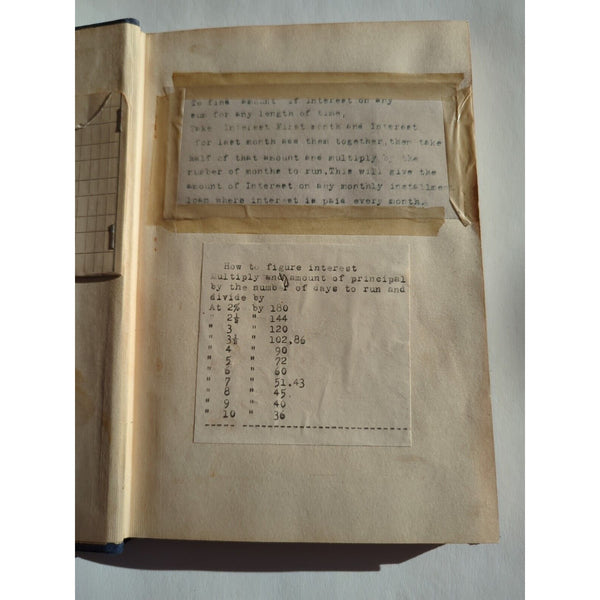 To find amount of Interest on any
sum for any length of time,
Take Interest First month and Interest
for last month add them together,then take
half of that amount and multiply by the
number of months to run.This will give the
amount of Interest on any monthly installment
loan where interest is paid every month.
How to figure interest
Multiply any amount of principal
by the number of days to run and
divide by
At 2% by 180
" 2½ " 144
" 3 " 120
" 3½ " 102,86
" 4 " 90
" 5 " 72
" 6 " 60
" 7 " 51.43
" 8 " 45
" 9 " 40
" 10 " 36